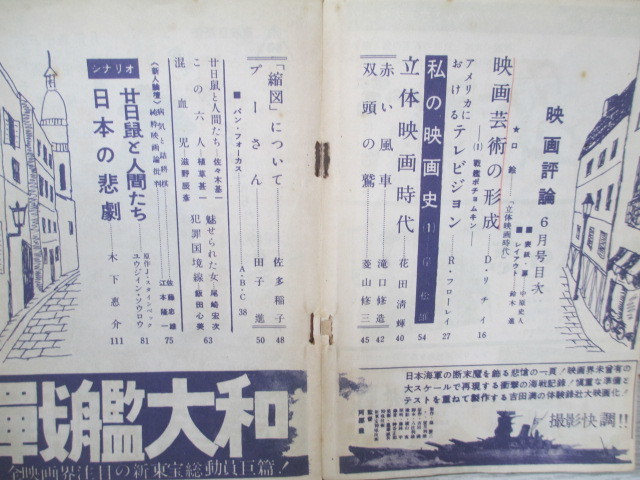 映画評論 6月号目次
★口絵……「立体映画時代」
■表紙・扉……中原史人
■レイアウト……鈴木進
映画芸術の形成……D・リチイ 16
——(1) 戦艦ポチョムキン——
アメリカにおけるテレビジョン……R・フローレイ 27
私の映画史(1) 岸松雄 54
立体映画時代……花田清輝 40
赤い風車……滝口修造 42
双頭の鷲……菱山修三 45
「縮図」について……佐多稲子 48
プーさん……田子進 50
■パン・フォーカス……A・B・C 38
廿日鼠と人間たち…佐々木基一
この六人…植草甚一
混血児…滋野辰彦
魅せられた女…尾崎宏次
犯罪国境線…飯田心美
63
《新人論壇》
病気と話の終焉……佐藤忠雄
純粋映画論批判……江本陽一
75
シナリオ
廿日鼠と人間たち
原作J・スタインベック
ユウジイン・ソウロウ
81
日本の悲劇……木下惠介 111
日本海軍の断末魔を飾る悲憤の一頁!映画界未曾有の
大スケールで再現する衝撃の海戦記録!慎重な準備と
テストを重ねて製作する吉田満の体験録壮大映画化!
撮影快調!!
戦艦大和
全映画界注目の新東宝総動員巨篇!